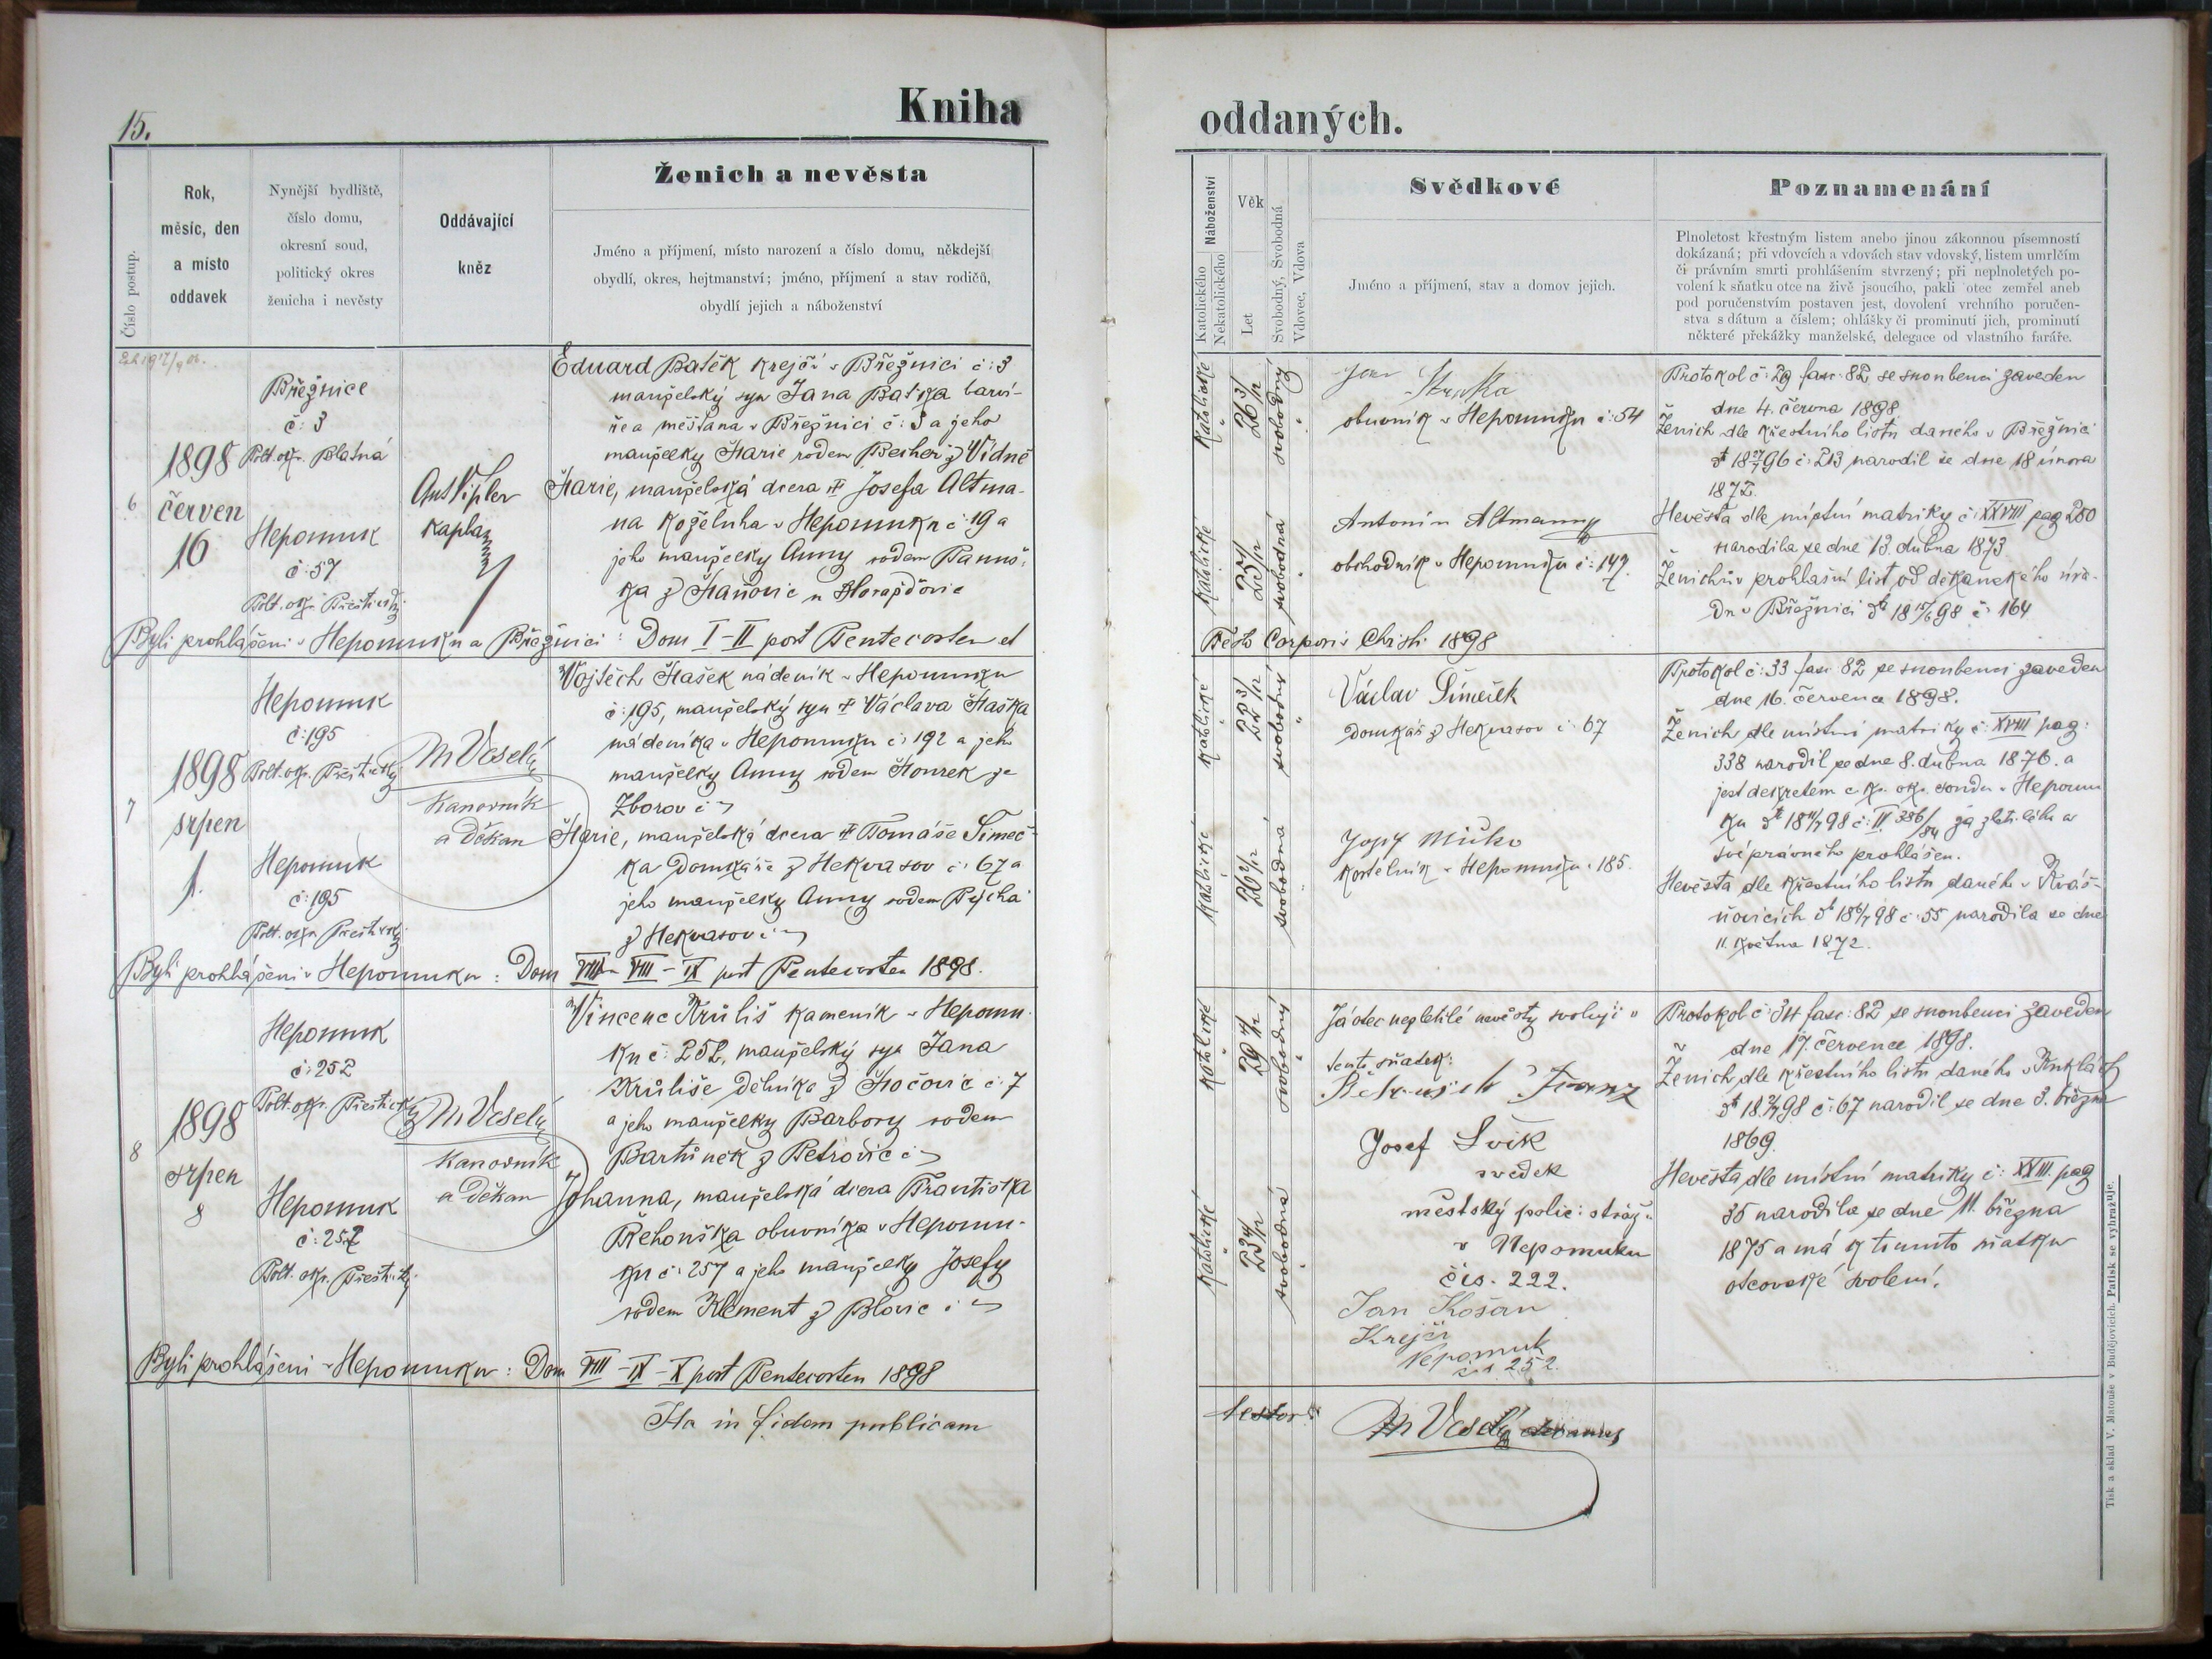 15.
Kniha
oddaných.
Číslo postup.
Rok,
měsíc, den
a místo
oddavek
Nynější bydliště,
číslo domu,
okresní soud,
politický okres
ženicha i nevěsty
Oddávající
kněz
Ženich a nevěsta
Jméno a příjmení, místo narození a číslo domu, někdejší
obydlí, okres, hejtmanství; jméno, příjmení a stav rodičů,
obydlí jejich a náboženství
Náboženství
Katolického
Nekatolického
Věk
Let
Svobodný, Svobodná
Vdovec, Vdova
Svědkové
Jméno a příjmení, stav a domov jejich.
Poznamenání
Plnoletost křestným listem anebo jinou zákonnou písemností
dokázaná; při vdovcích a vdovách stav vdovský, listem umrlčím
či právním smrti prohlášením stvrzený; při neplnoletých po-
volení k sňatku otce na živě jsoucího, pakli otec zemřel aneb
pod poručenstvím postaven jest, dovolení vrchního poručen-
stva s dátum a číslem; ohlášky či prominutí jich, prominutí
některé překážky manželské, delegace od vlastního faráře.
6
1898
červen
16
Březnice
č: 3
Polt. okr. Blatná
Nepomuk
č: 57
Polt. okr. Přeštický
Ant Vipler
kaplan
Eduard Batěk krejčí v Březnici č: 3
manželský syn Jana Baťka barví-
ře a měšťana v Březnici č: 3 a jeho
manželky Marie rodem Becher z Vídně
Marie, manželská dcera † Josefa Altma-
na koželuha v Nepomuku č: 19 a
jeho manželky Anny rodem Panuš-
ka z Maňovic u Horažďovic
katolické
26 3/12
svobodný
katolické
25 2/12
svobodná
Jan Struska
obuvník v Nepomuku č: 54
Antonín Altmann
obchodník v Nepomuku č: 147.
Protokol č: 29 fasc: 82 se snoubenci zaveden
dne 4. června 1898
Ženich dle křestního listu daného v Březnici
č: 213 narodil se dne 18 února
1872.
Nevěsta dle místní matriky č: XXVIII pag 280
narodila se dne 13. dubna 1873
Ženichův prohlašní list od děkanského úřa-
du v Březnici dto 18 15/6 98 č: 164
Byli prohlášeni v Nepomuku a Březnici: Dom I-II post Pentecosten et
Festo Corporis Christi 1898
7
1898
srpen
1.
Nepomuk
č: 195
Polt. okr. Přeštický
Nepomuk
č: 195
Polt. okr. Přeštický
M Veselý
Kanovník
a Děkan
Vojtěch Mašek nádeník v Nepomuku
č: 195, manželský syn † Václava Maška
nádeníka v Nepomuku č: 192 a jeho
manželky Anny rodem Mourek ze
Zborov
Marie, manželská dcera † Tomáše Šimeč-
ka domkáře z Nekvasov č: 67 a
jeho manželky Anny rodem Pýcha
z Nekvasov
katolické
22 3/12
svobodný
katolické
26 2/12
svobodná
Václav Šimeček
domkář z Nekvasov č: 67
Josef Míčko
kostelník v Nepomuku 185.
Protokol č: 33 fasc 82 se snoubenci zaveden
dne 16. července 1898.
Ženich dle místní matriky č: XVIII pag:
338 narodil se dne 8. dubna 1876. a
jest dekretem c. kr. okr. soudu v Nepomu
ku za zletilého a
svéprávného prohlášen.
Nevěsta dle křestního listu daného v Kváš-
ňovicích č: 55 narodila se dne
11. května 1872.
Byli prohlášeni v Nepomuku: Dom VII - VIII - IX post Pentecosten 1898.
8
1898
srpen
8
Nepomuk
č: 252
Polt. okr. Přeštický
Nepomuk
č: 257
Polt. okr. Přeštický
M Veselý
Kanovník
a Děkan
Vincenc Krůliš kameník v Nepomu-
ku č: 252, manželský syn Jana
Krůliše dělníka z Močovic č: 7
a jeho manželky Barbory rodem
Bartůněk z Petrovic
Johanna, manželská dcera Františka
Řehouška obuvníka v Nepomu-
ku č: 257 a jeho manželky Josefy
rodem Klement z Blovic
katolické
29
svobodný
katolické
23
svobodná
Já otec nezletilé nevěsty svoluji v
tento sňatek:
Franz
Josef Svík
svědek
městský polic: stráž.
v Nepomuku
čís. 222.
Jan Košan
Krejčí
Nepomuk
čís 252.
Protokol č: 34 fasc: 82 se snoubenci zaveden
dne 17. července 1898.
Ženich dle křestního listu daného v
č: 67 narodil se dne 3. března
1869.
Nevěsta dle místní matriky č: XXIII. pag
35 narodila se dne 11. března
1875 a má k tomuto sňatku
otcovské svolení.
Byli prohlášeni v Nepomuku: Dom VIII - IX - X post Pentecosten 1898
Ita in fidem publicam
testor:
M Veselý decanus
Tisk a sklad V. Matouše v Budějovicích. Patisk se vyhražuje.